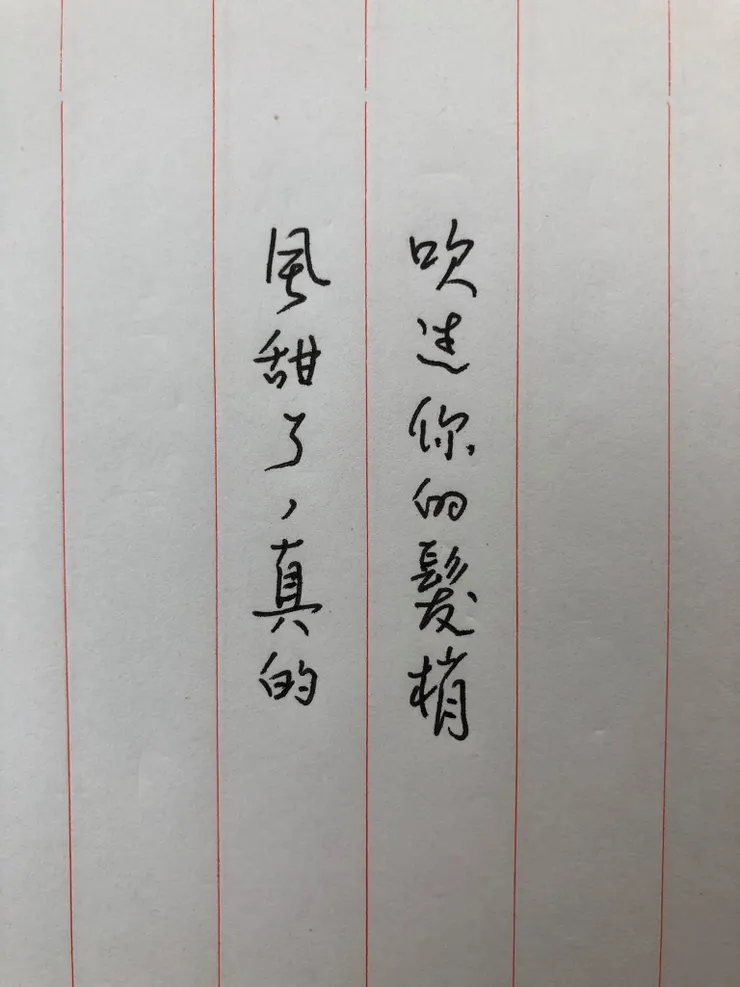 吹進你的髮梢
風甜了，真的